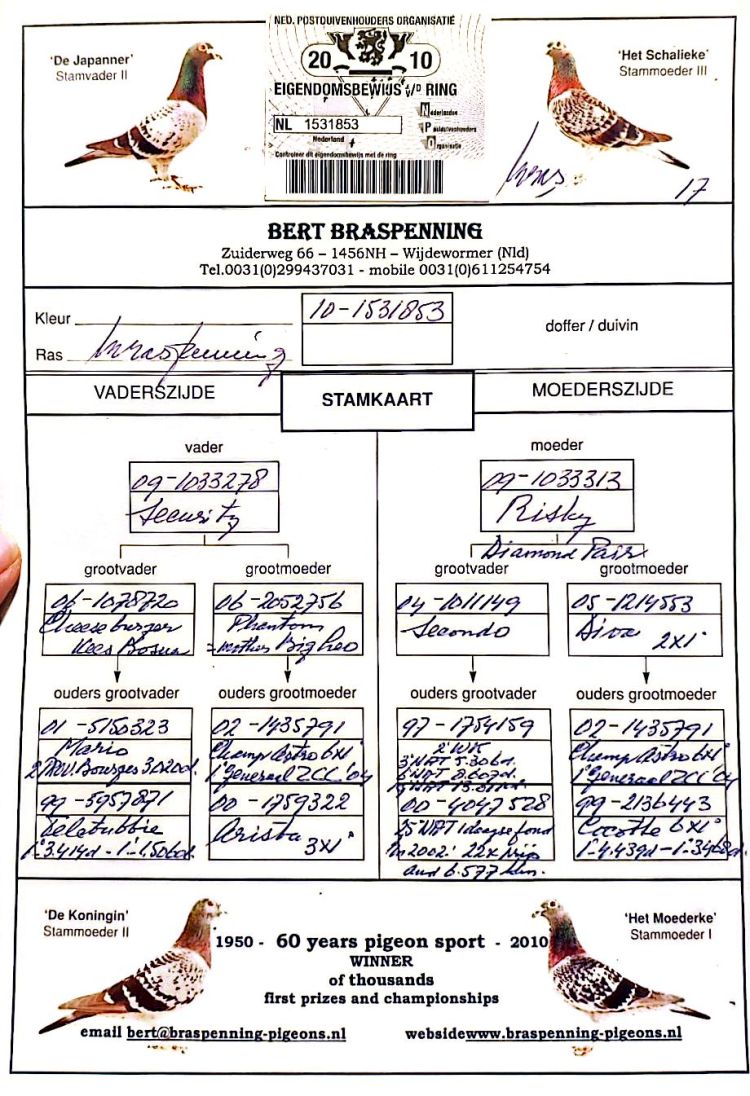 NED. POSTDUIVENHOUDERS ORGANISATIE
'De Japanner'
Stamvader II
20 10
'Het Schalieke'
Stammoeder III
EIGENDOMSBEWIJS v/d RING
NL 1531853
Nederland
Nederlandse
Postduivenhouders
Organisatie
Controleer dit eigendomsbewijs met de ring
17
BERT BRASPENNING
Zuiderweg 66 – 1456NH – Wijdewormer (Nld)
Tel.0031(0)299437031 - mobile 0031(0)611254754
Kleur
10-1531853
doffer / duivin
Ras Braspenning
VADERSZIJDE
STAMKAART
MOEDERSZIJDE
vader
moeder
09-1033278
Security
09-1033313
Risky
Diamond Pair
grootvader
grootmoeder
grootvader
grootmoeder
06-1078720
Cheeseburger
Kees Bosua
06-2052756
Phantom
=mother Big Leo
04-1011149
Secondo
05-1214553
Diva 2x1°
ouders grootvader
ouders grootmoeder
ouders grootvader
ouders grootmoeder
01-5150323
Mario
Bourges 3.020d.
02-1435791
Champ Astro 6x1°
1°generaal ZCC '04
97-1754159
2°WK
3°NAT 5.306d.
6°NAT 8.607d.
02-1435791
Champ Astro 6x1°
1°generaal ZCC '04
99-5957871
Teletubbie
1°3.414d - 1°1.506d.
00-1759322
Arista 3x1°
00-4047528
25°NAT 1daagsefond
in 2002: 22x prijs
and 6.577 km.
99-2136443
Cocotte 6x1°
1°-4.439d-1°.3468d.
'De Koningin'
Stammoeder II
1950 - 60 years pigeon sport - 2010
WINNER
of thousands
first prizes and championships
'Het Moederke'
Stammoeder I
email bert@braspenning-pigeons.nl
websidewww.braspenning-pigeons.nl